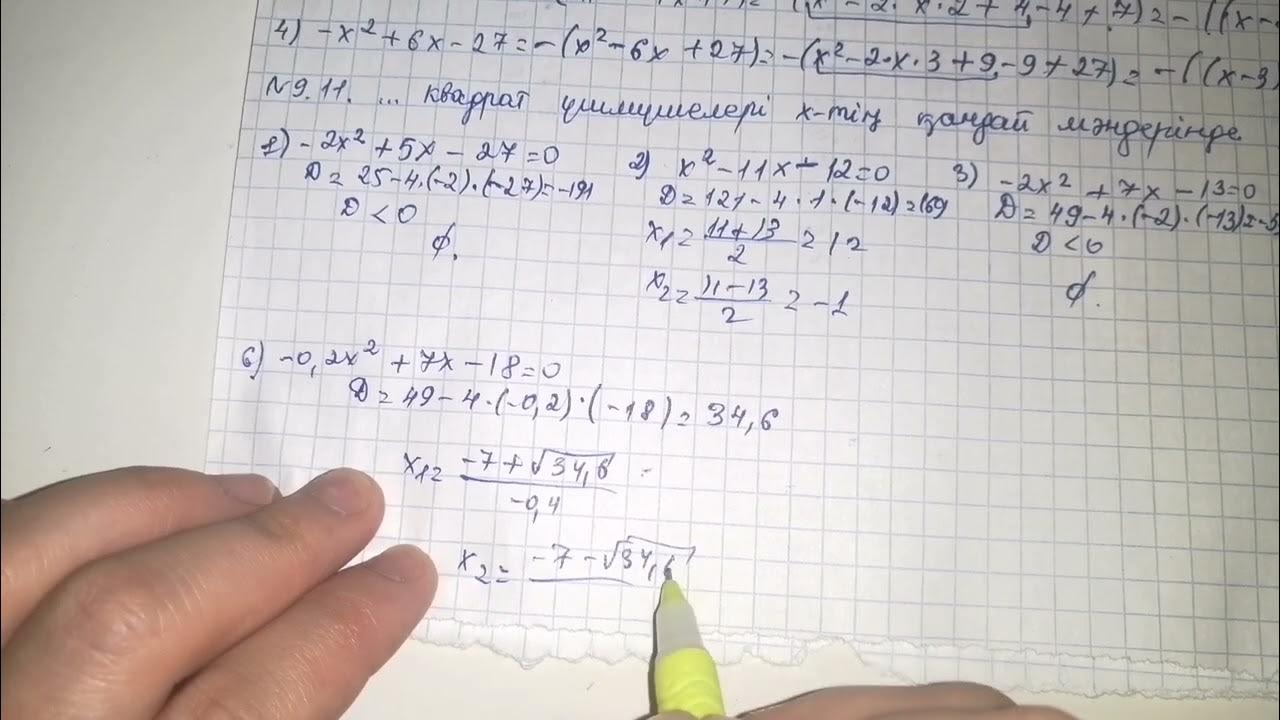 x · 2 + 4 - 4 + 7) = - ((x -
4) -x² + 6x - 27 = -(x² - 6x + 27) = -(x² - 2·x·3 + 9 - 9 + 27) = -((x-3
№9.11. ... квадрат үшмүшелері x-тің қандай мәндерінде
1) -2x² + 5x - 27 = 0
D = 25 - 4·(-2)·(-27) = -191
D < 0
∅.
2) x² - 11x - 12 = 0
D = 121 - 4·1·(-12) = 169
x₁ = (11+13)/2 = 12
x₂ = (11-13)/2 = -1
3) -2x² + 7x - 13 = 0
D = 49 - 4·(-2)·(-13) = -5
D < 0
∅.
6) -0,2x² + 7x - 18 = 0
D = 49 - 4·(-0,2)·(-18) = 34,6
x₁ = (-7 + √34,6)/(-0,4) =
x₂ = -7 - √34,6